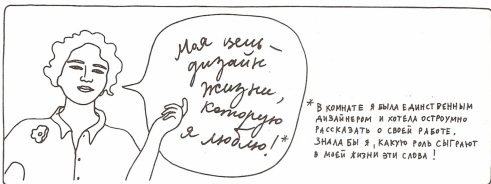 Моя цель –
дизайн
жизни,
которую
я люблю!*
* В КОМНАТЕ Я БЫЛА ЕДИНСТВЕННЫМ
ДИЗАЙНЕРОМ И ХОТЕЛА ОСТРОУМНО
РАССКАЗАТЬ О СВОЕЙ РАБОТЕ.
ЗНАЛА БЫ Я, КАКУЮ РОЛЬ СЫГРАЮТ
В МОЕЙ ЖИЗНИ ЭТИ СЛОВА!